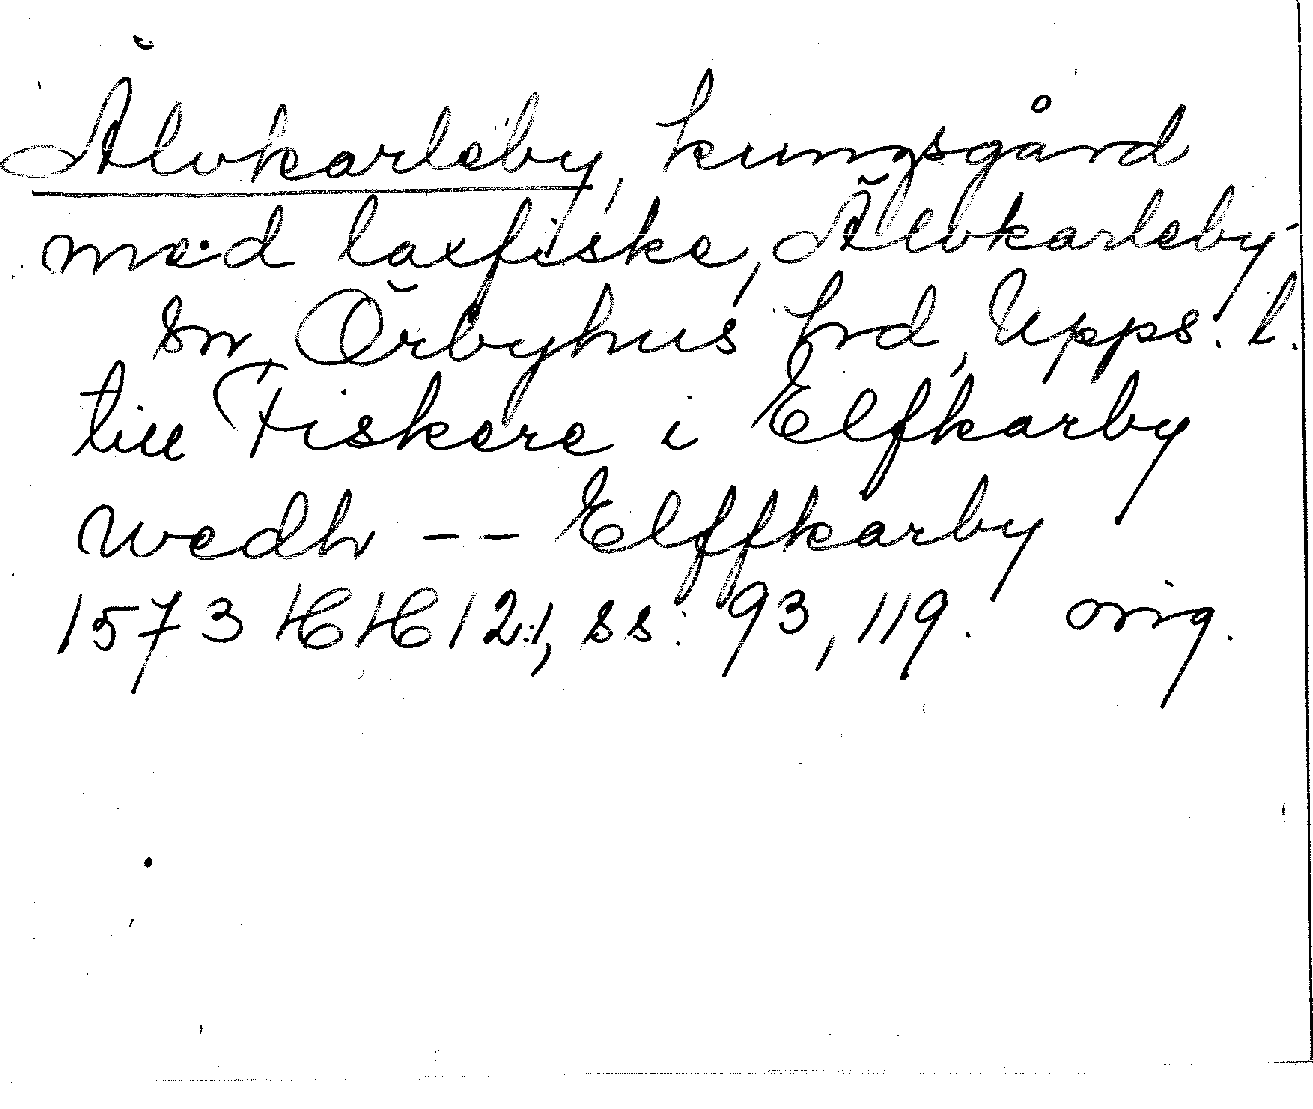 Älvkarleby, kungsgård
med laxfiske, Älvkarleby
sn, Örbyhus hrd, Upps. l.
till Fiskere i Elfkarby
wedh -- Elffkarby
1573 HH 12:1, ss. 93, 119. orig.